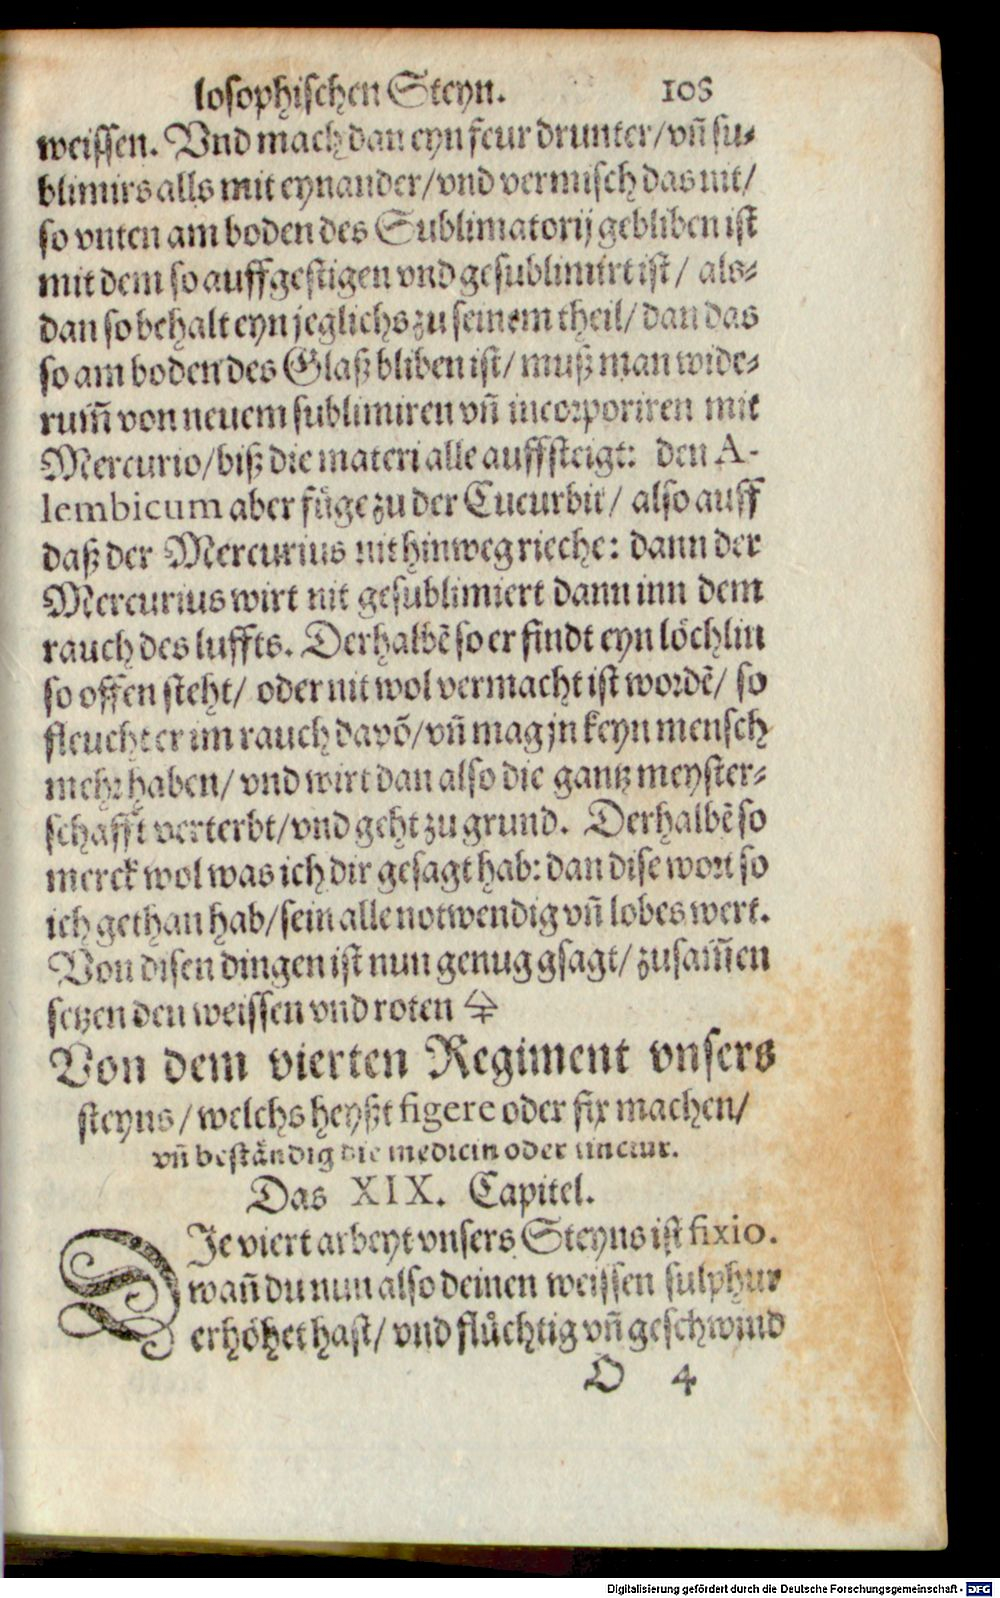 losophischen Steyn. 108
weissen. Vnd mach dan eyn feur drunter/ vñ su⸗
blimirs alls mit eynander/ vnd vermisch das nit/
so vnten am boden des Sublimatorij gebliben ist
mit dem so auffgestigen vnd gesublimirt ist/ als⸗
dan so behalt eyn jeglichs zu seinem theil/ dan das
so am boden des Glaß bliben ist/ muß man wide⸗
rum̃ von neuem sublimiren vñ incorporiren mit
Mercurio/ biß die materi alle auffsteigt: den A-
lembicum aber füge zu der Cucurbit/ also auff
daß der Mercurius nit hinweg rieche: dann der
Mercurius wirt nit gesublimiert dann inn dem
rauch des luffts. Derhalbẽ so er findt eyn löchlin
so offen steht/ oder nit wol vermacht ist wordẽ/ so
fleucht er im rauch davõ/ vñ mag jn keyn mensch
mehr haben/ vnd wirt dan also die gantz meyster⸗
schafft verterbt/ vnd geht zu grund. Derhalbẽ so
merck wol was ich dir gesagt hab: dan dise wort so
ich gethan hab/ sein alle notwendig vñ lobes wert.
Von disen dingen ist nun genug gsagt/ zusam̃en
setzen den weissen vnd roten 🜍
Von dem vierten Regiment vnsers
steyns/ welchs heyßt figere oder fix machen/
vñ beständig die medicin oder tinctur.
Das XIX. Capitel.
DJe viert arbeyt vnsers Steyns ist fixio.
wañ du nun also deinen weissen sulphur
erhöhet hast/ vnd flüchtig vñ geschwind
O 4
Digitalisierung gefördert durch die Deutsche Forschungsgemeinschaft - DFG